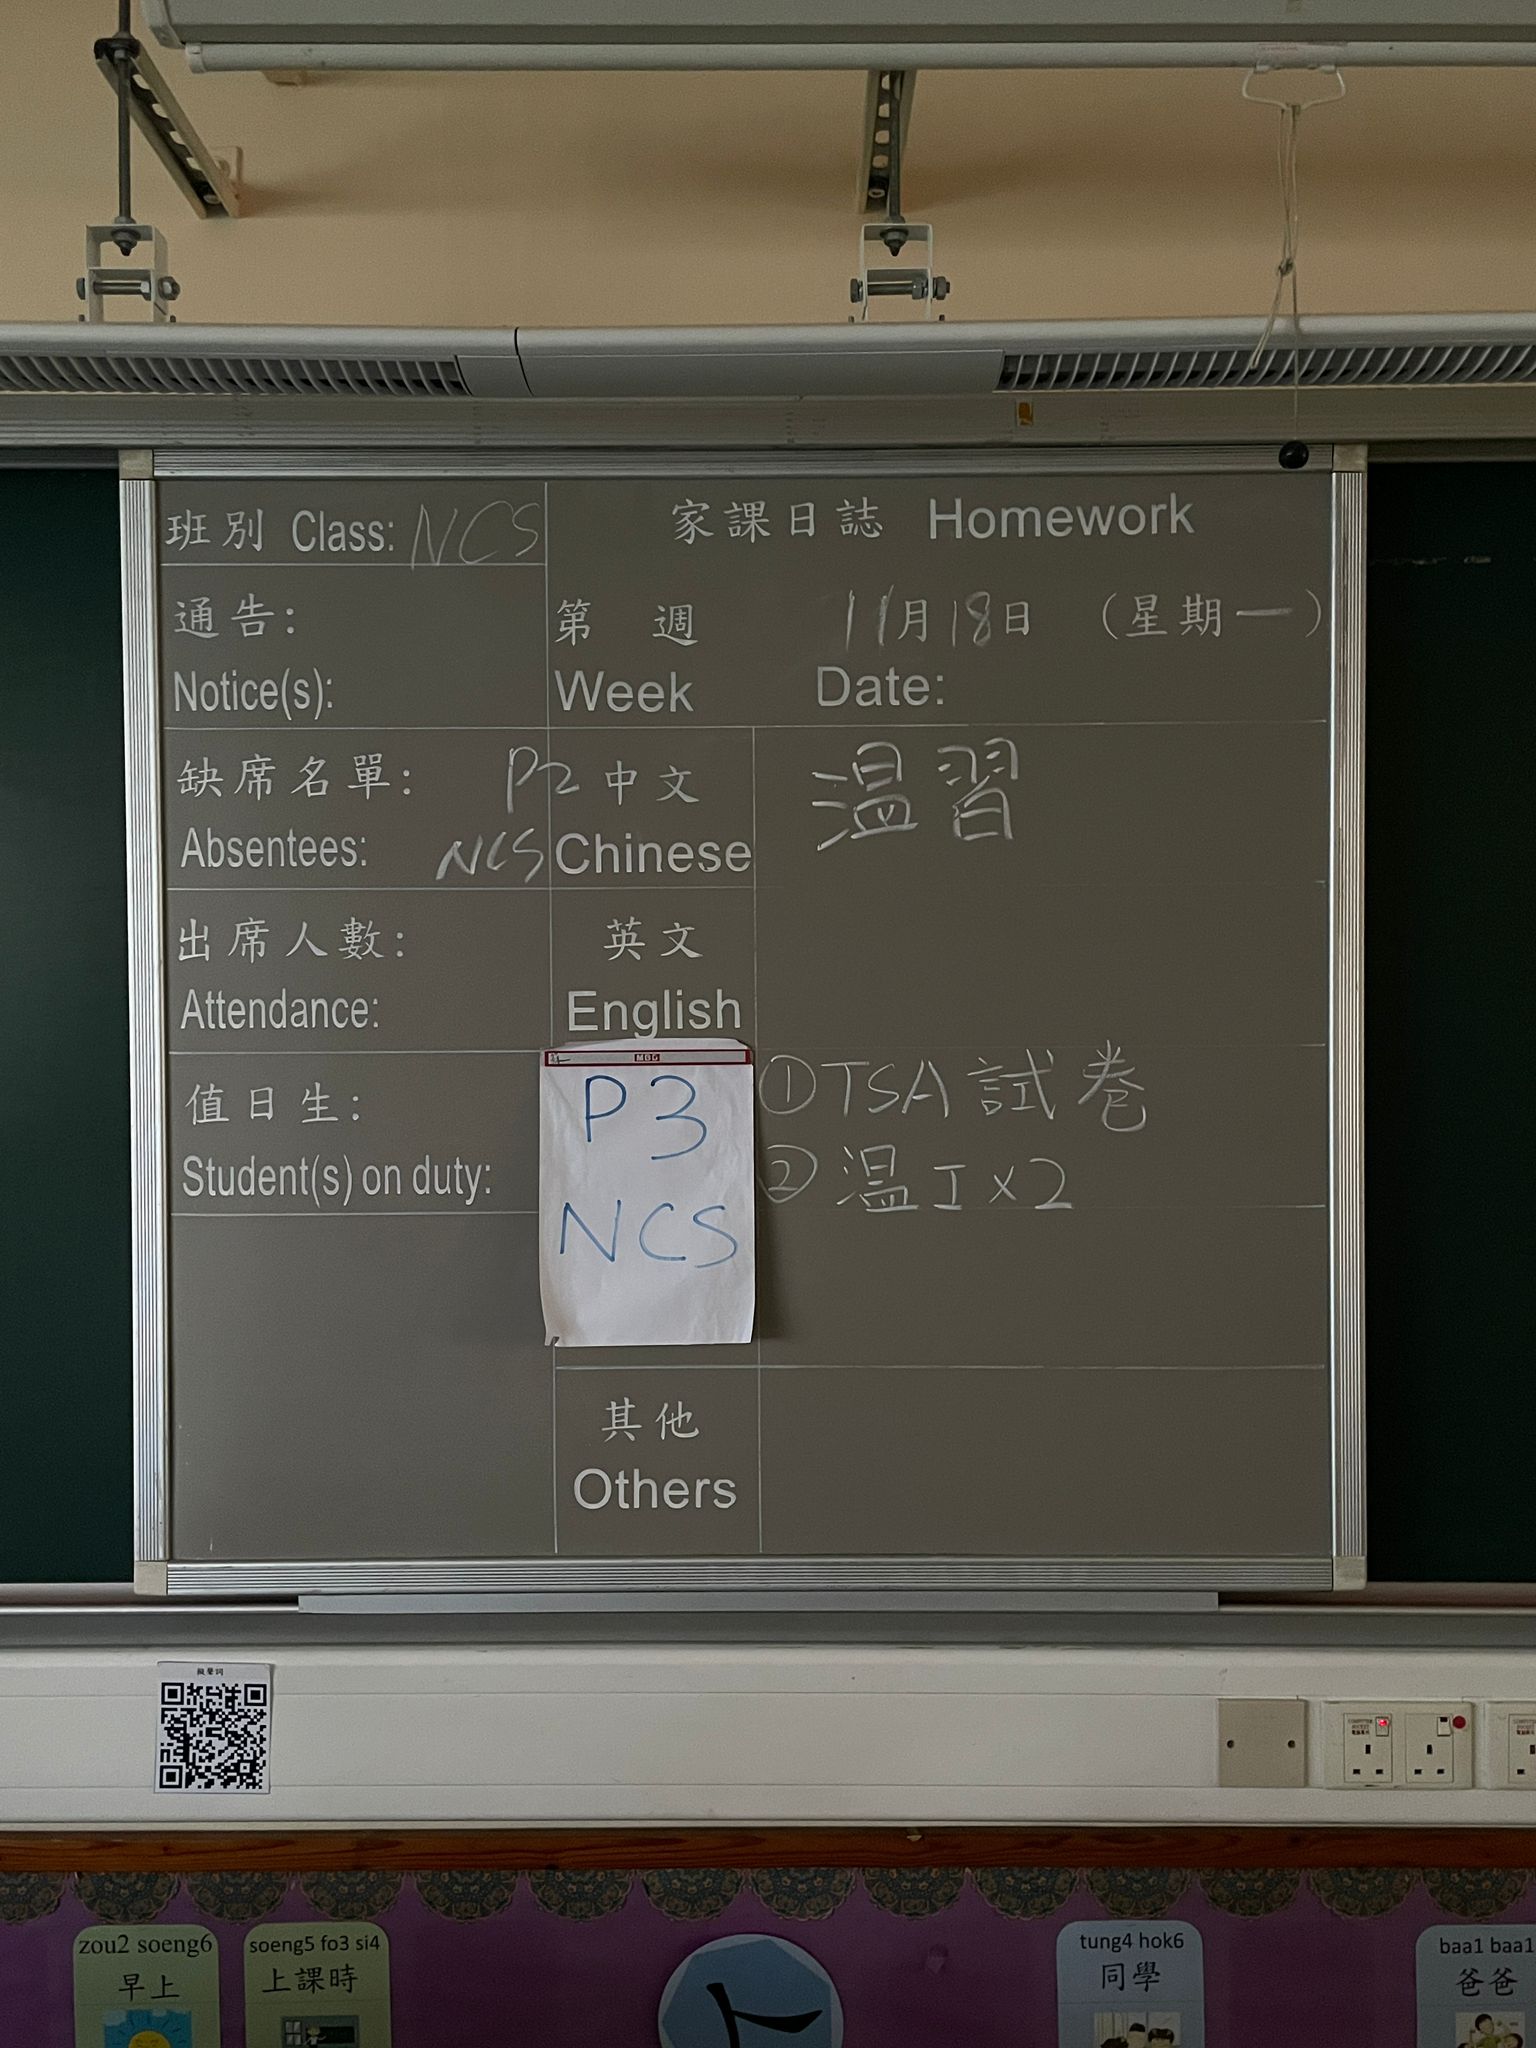 班別 Class: NCS
家課日誌 Homework
通告:
Notice(s):
第 週 11月18日 (星期一)
Week Date:
缺席名單:
Absentees:
P2 中文
NCS Chinese
温習
出席人數:
Attendance:
英文
English
值日生:
Student(s) on duty:
P3
NCS
①TSA試卷
②温工x2
其他
Others
擬聲詞
zou2 soeng6
早上
soeng5 fo3 si4
上課時
tung4 hok6
同學
baa1 baa1
爸爸